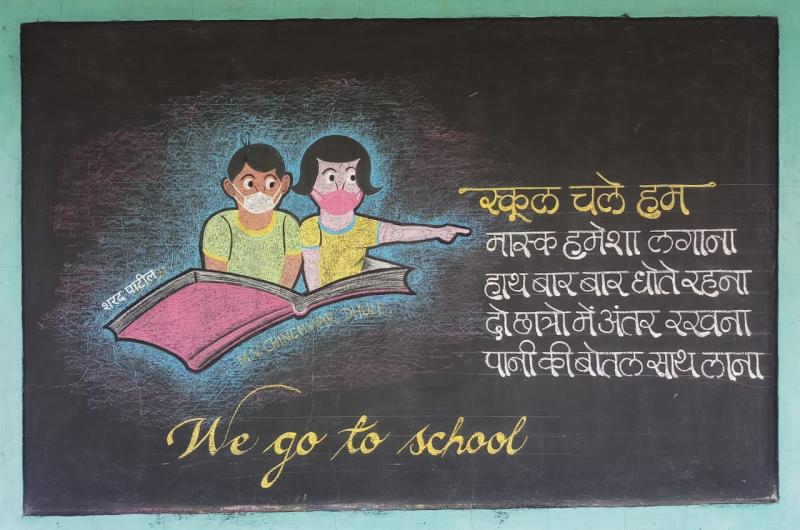 स्कूल चले हम
मास्क हमेशा लगाना
हाथ बार बार धोते रहना
दो छात्रो में अंतर रखना
पानी की बोतल साथ लाना
शरद पाटील
CHINCHWAR DHULE
We go to school